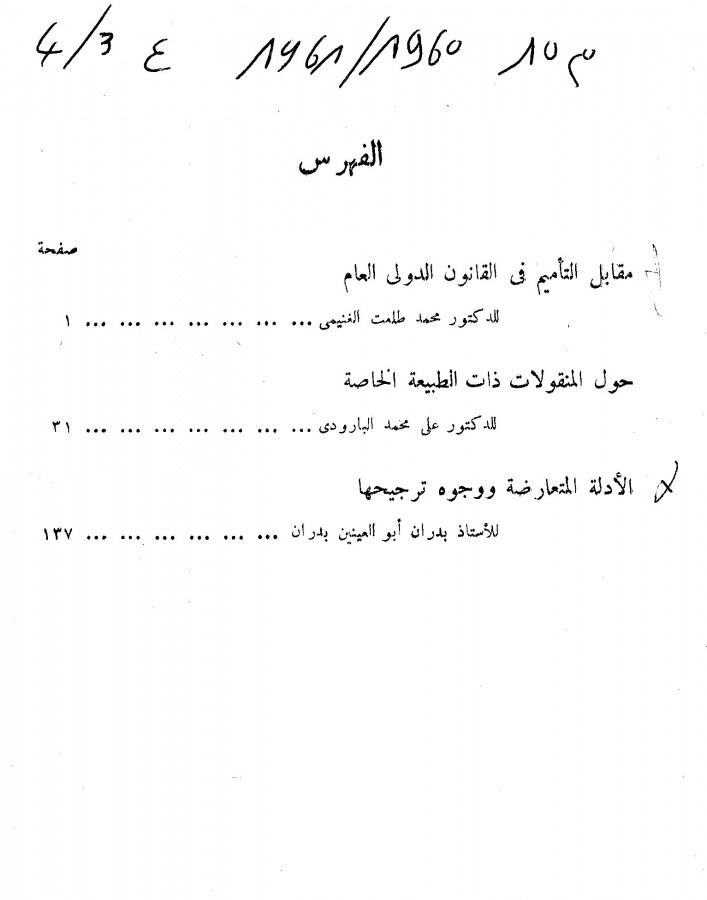 م 10 1960/1961 ع 3/4
الفهرس
صفحة
مقابل التأميم فى القانون الدولى العام
للدكتور محمد طلعت الغنيمى ... ... ... ... ... ... ... ١
حول المنقولات ذات الطبيعة الخاصة
للدكتور على محمد البارودى ... ... ... ... ... ... ... ٣١
الأدلة المتعارضة ووجوه ترجيحها
للأستاذ بدران أبو العينين بدران ... ... ... ... ... ... ١٣٧